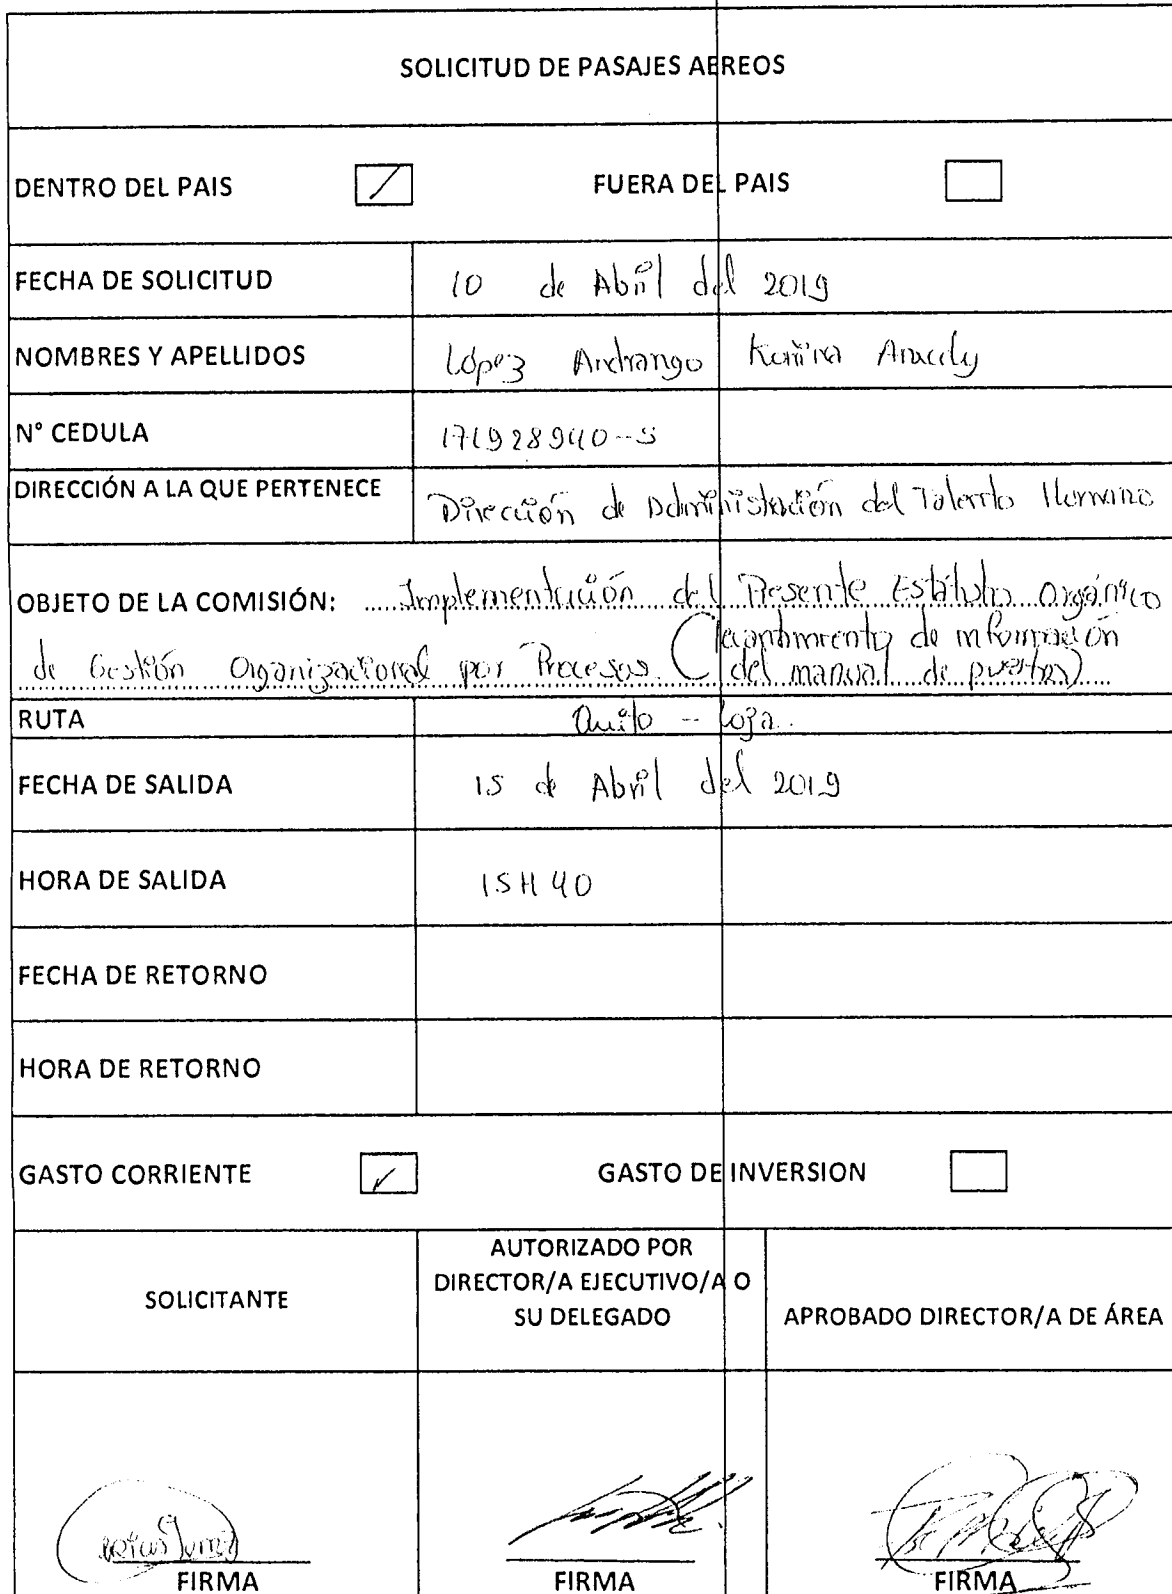 SOLICITUD DE PASAJES AEREOS
DENTRO DEL PAIS FUERA DEL PAIS
FECHA DE SOLICITUD 10 de Abril del 2019
NOMBRES Y APELLIDOS López Andrango Aracely
N° CEDULA
DIRECCIÓN A LA QUE PERTENECE Dirección de Administración del Talento Humano
OBJETO DE LA COMISIÓN: Implementación del Presente Estatuto Orgánico
de Gestión Organizacional por Procesos (levantamiento de información
del manual de puestos)
RUTA Quito - Loja
FECHA DE SALIDA 15 de Abril del 2019
HORA DE SALIDA 15H40
FECHA DE RETORNO
HORA DE RETORNO
GASTO CORRIENTE GASTO DE INVERSION
SOLICITANTE
AUTORIZADO POR
DIRECTOR/A EJECUTIVO/A O
SU DELEGADO
APROBADO DIRECTOR/A DE ÁREA
FIRMA FIRMA FIRMA